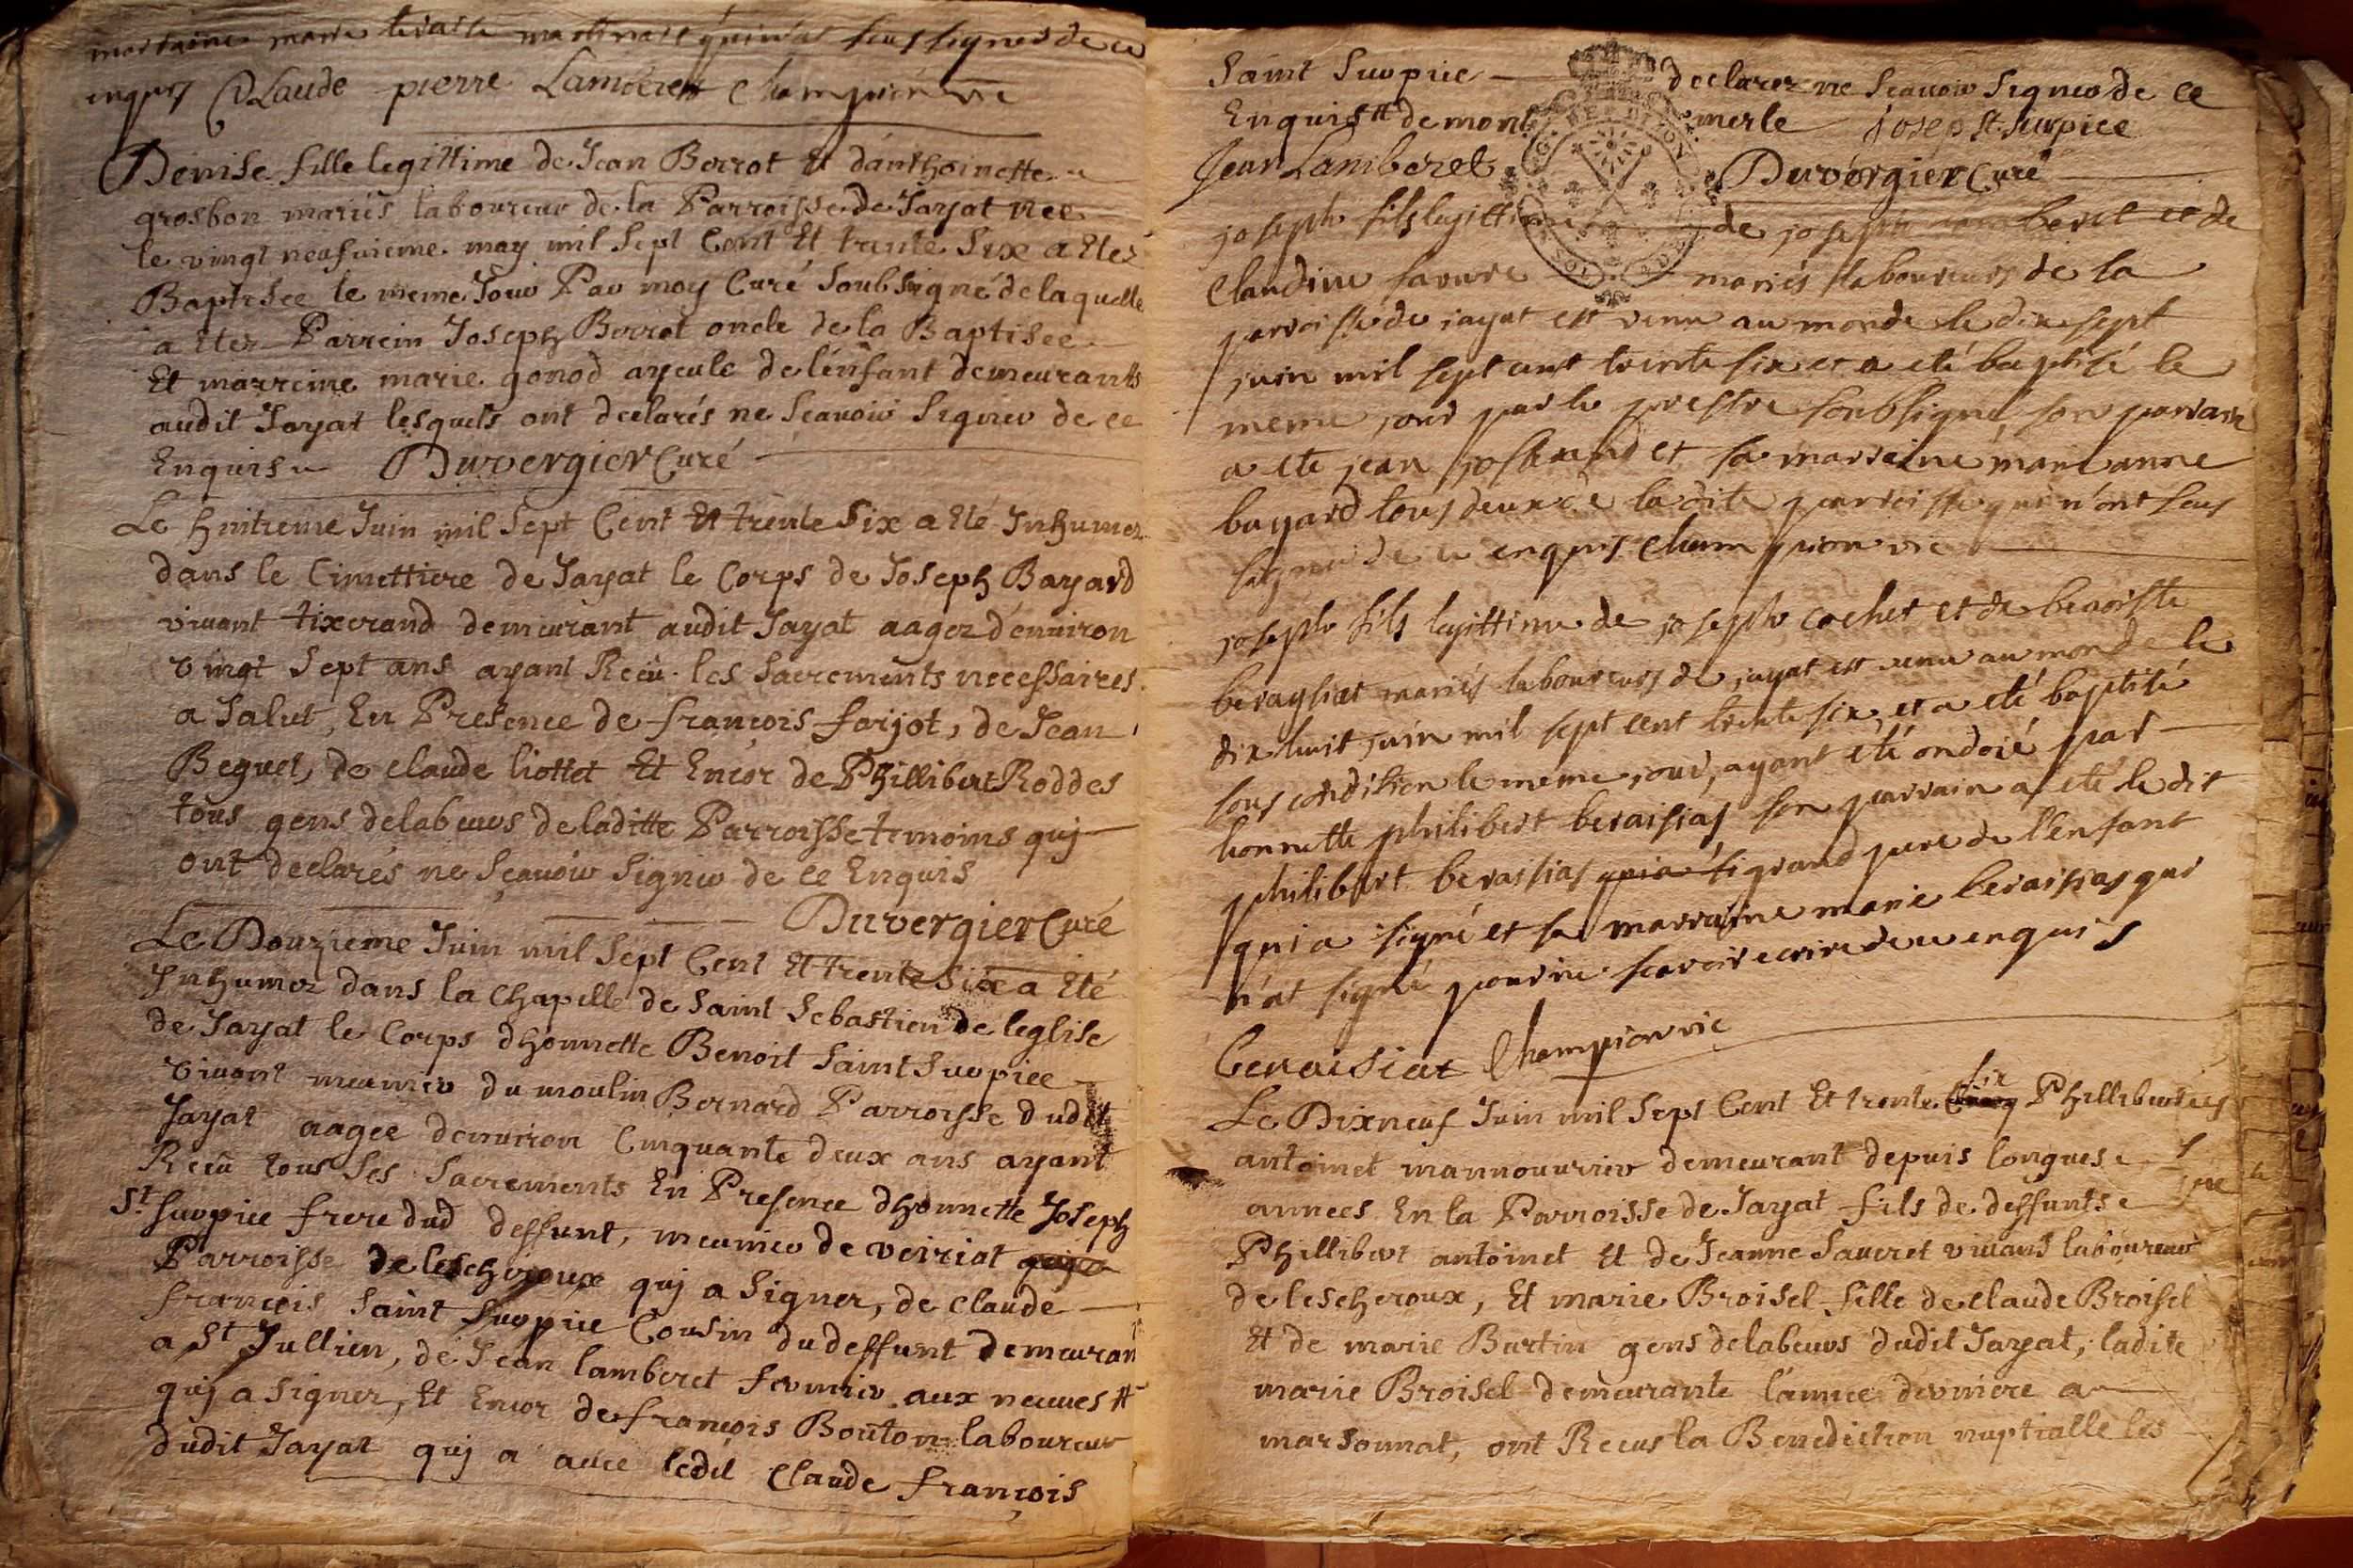 marraine marie sous signer de ce
enquis Claude pierre Lamberet Championvic
Denise fille legittime de Jean Borrot Et d'anthoinette
grosbon mariés laboureur de la Parroisse de Jayat nee
le vingt neufvieme may mil sept Cent Et trente Six a Etez
Baptisee le meme Jour Par moy Curé Soubsigné de laquelle
a Etez Parrein Joseph Borrot oncle de la Baptisee
Et marreine marie gonod ayeule de l'enfant demeurants
audit Jayat lesquels ont declarés ne Scauoir Signer de ce
Enquis Duvergier Curé
Le huitieme Juin mil Sept Cent Et trente Six a Eté Inhumez
dans le Cimettiere de Jayat le Corps de Joseph Bayard
viuant tixerand demeurant audit Jayat aagez d'enuiron
vingt Sept ans ayant Recu les Sacrements necessaires
a Salut, En Presence de francois forjot, de Jean
Beguet, de claude liottet Et Encor de Phillibert Roddes
tous gens delabeurs de laditte Parroisse temoins quj
ont declarés ne Sçauoir Signer de ce Enquis
Duvergier Curé
Le Douzieme Juin mil Sept Cent Et trente Six a Eté
Inhumez dans la Chapelle de Saint Sebastien de leglise
de Jayat le Corps dhonnette Benoit Saint Surpice
viuant meunier du moulin Bernard Parroisse dudit
Jayat aagee denuiron Cinquante deux ans ayant
Recu tous Ses Sacrements En Presence dhonnette Joseph
St Surpice frere dud deffunt, meunier de veiriat
Parroisse de lescheroux quj a Signer, de Claude
francois Saint Surpice Cousin du deffunt demeurant
a St Jullien, de Jean lamberet fermier aux neuues
quj a Signer, Et Encor de francois Bouton laboureur
dudit Jayat quj a auec ledit Claude François
Saint Surpice declarez ne Scauoir Signer de ce
Enquis de mont merle josep St Surpice
Jean Lamberet Duvergier Curé
joseph fils legittime de joseph lamberet et de
Claudine favure mariés laboureurs de la
parroisse de jayat est venu au monde le dix sept
juin mil sept cent trente six et a eté baptisé le
meme jour par le prestre soubsigné, son parrain
a eté jean josserand et sa marraine marie anne
bayard tous deux de la dite parroisse qui n'ont sous
signer de ce enquis Championvic
joseph fils legittime de joseph cochet et de benoiste
beraysiat mariés laboureurs de jayat est venu au monde le
dix huit juin mil sept cent trente six, et a eté baptisé
sous condition le meme jour, ayant eté ondoié par
honnette philibert beraisiat son parrain a eté le dit
philibert beraisiat grand pere de l'enfant
qui a signé et sa marraine marie beraisiat qui
n'at signé pour ne scavoir ecrire de ce enquis
beraisiat Championvic
Le Dixneuf Juin mil Sept Cent Et trente six Phillibert
antoinet mannouurier demeurant depuis longues
annees En la Parroisse de Jayat fils de deffunts
Phillibert antoinet Et de Jeanne Sauret viuans laboureur
de lescheroux, Et marie Broisel fille de claude Broisel
Et de marie Burtin gens delabeurs dudit Jayat, ladite
marie Broisel demeurante l'annee derniere a
marsonnat, ont Recus la Benediction nuptialle les